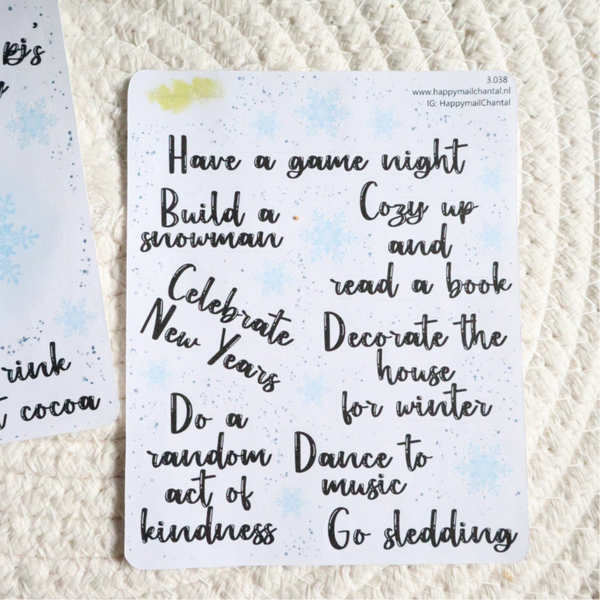 3.038
www.happymailchantal.nl
IG: HappymailChantal
Have a game night
Build a
snowman
Cozy up
and
read a book
Celebrate
New Years
Decorate the
house
for winter
Do a
random
act of
kindness
Dance to
music
Go sledding
rink
t cocoa